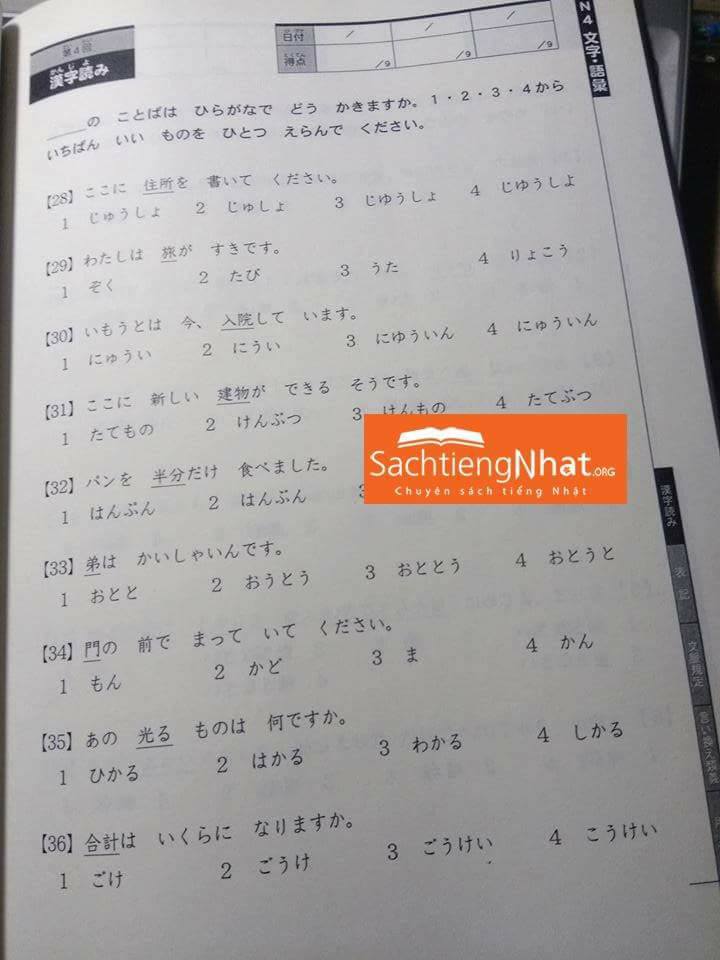 第4回
かんじよ
漢字読み
ひづけ
日付 / / /
とくてん
得点 /9 /9 /9
N4 文字・語彙
＿＿の ことばは ひらがなで どう かきますか。1・2・3・4から
いちばん いい ものを ひとつ えらんで ください。
【28】ここに 住所を 書いて ください。
1 じゅうしょ 2 じゅしょ 3 じゆうしょ 4 じゆうしよ
【29】わたしは 旅が すきです。
1 ぞく 2 たび 3 うた 4 りょこう
【30】いもうとは 今、 入院して います。
1 にゅうい 2 にうい 3 にゆういん 4 にゅういん
【31】ここに 新しい 建物が できる そうです。
1 たてもの 2 けんぶつ 3 けんもの 4 たてぶつ
SachtiengNhat.ORG
Chuyên sách tiếng Nhật
【32】パンを 半分だけ 食べました。
1 はんぷん 2 はんぶん
【33】弟は かいしゃいんです。
1 おとと 2 おうとう 3 おととう 4 おとうと
【34】門の 前で まって いて ください。
1 もん 2 かど 3 ま 4 かん
【35】あの 光る ものは 何ですか。
1 ひかる 2 はかる 3 わかる 4 しかる
【36】合計は いくらに なりますか。
1 ごけ 2 ごうけ 3 ごうけい 4 こうけい
漢字読み
表記
文脈規定
言い換え類義